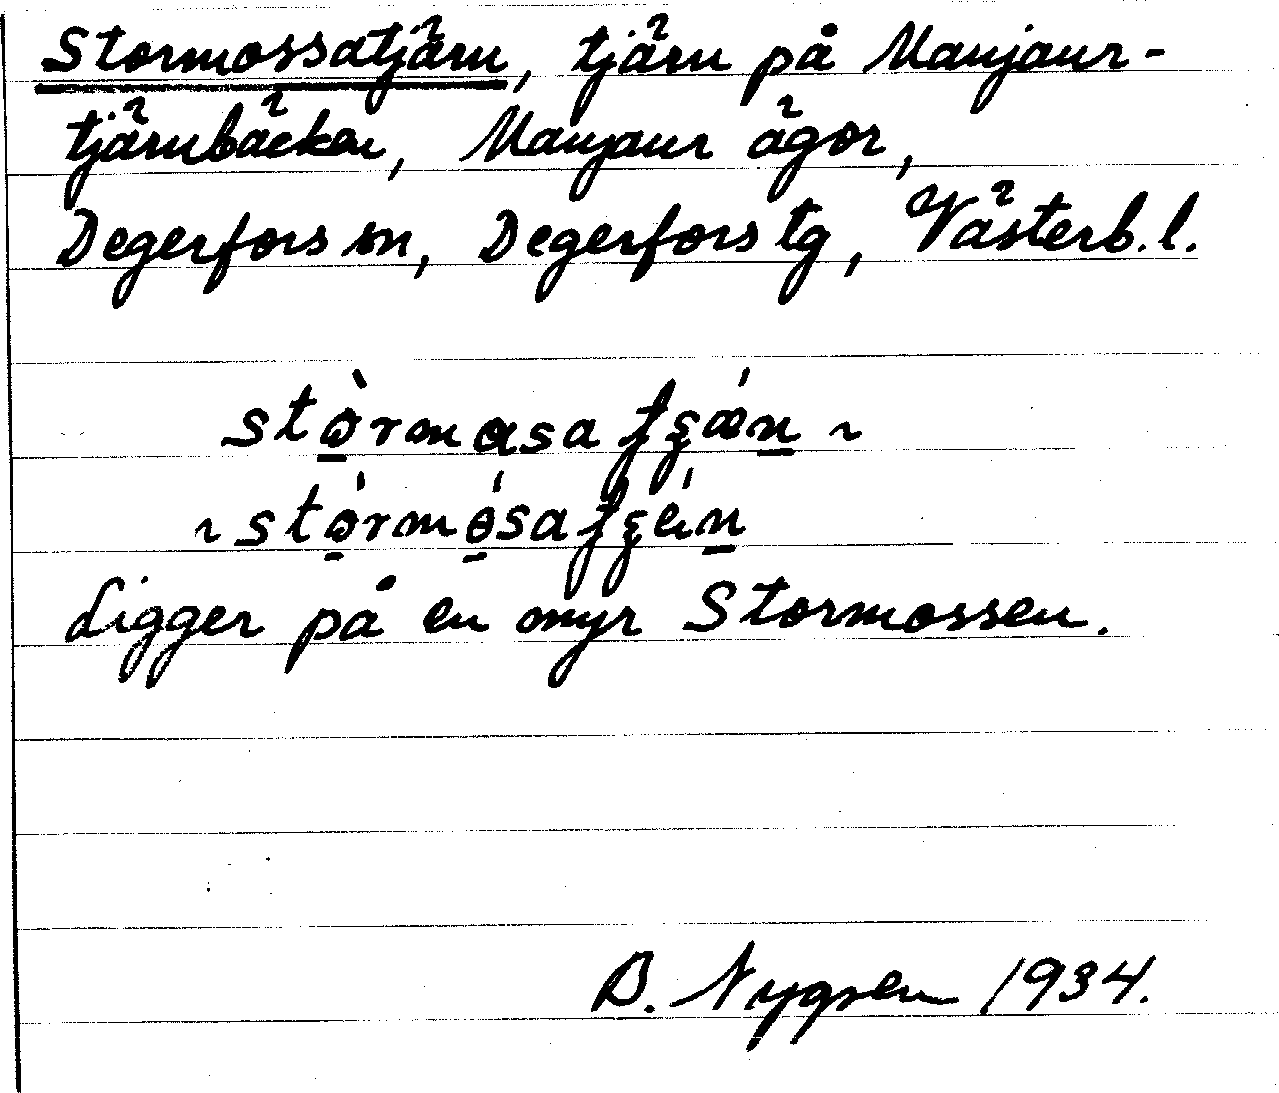 Stormossatjärn, tjärn på Manjaur-
tjärnbäcken, Manjaur ägor,
Degerfors sn, Degerfors tg, Västerb. l.
Ligger på en myr Stormossen.
B. Nygren 1934.